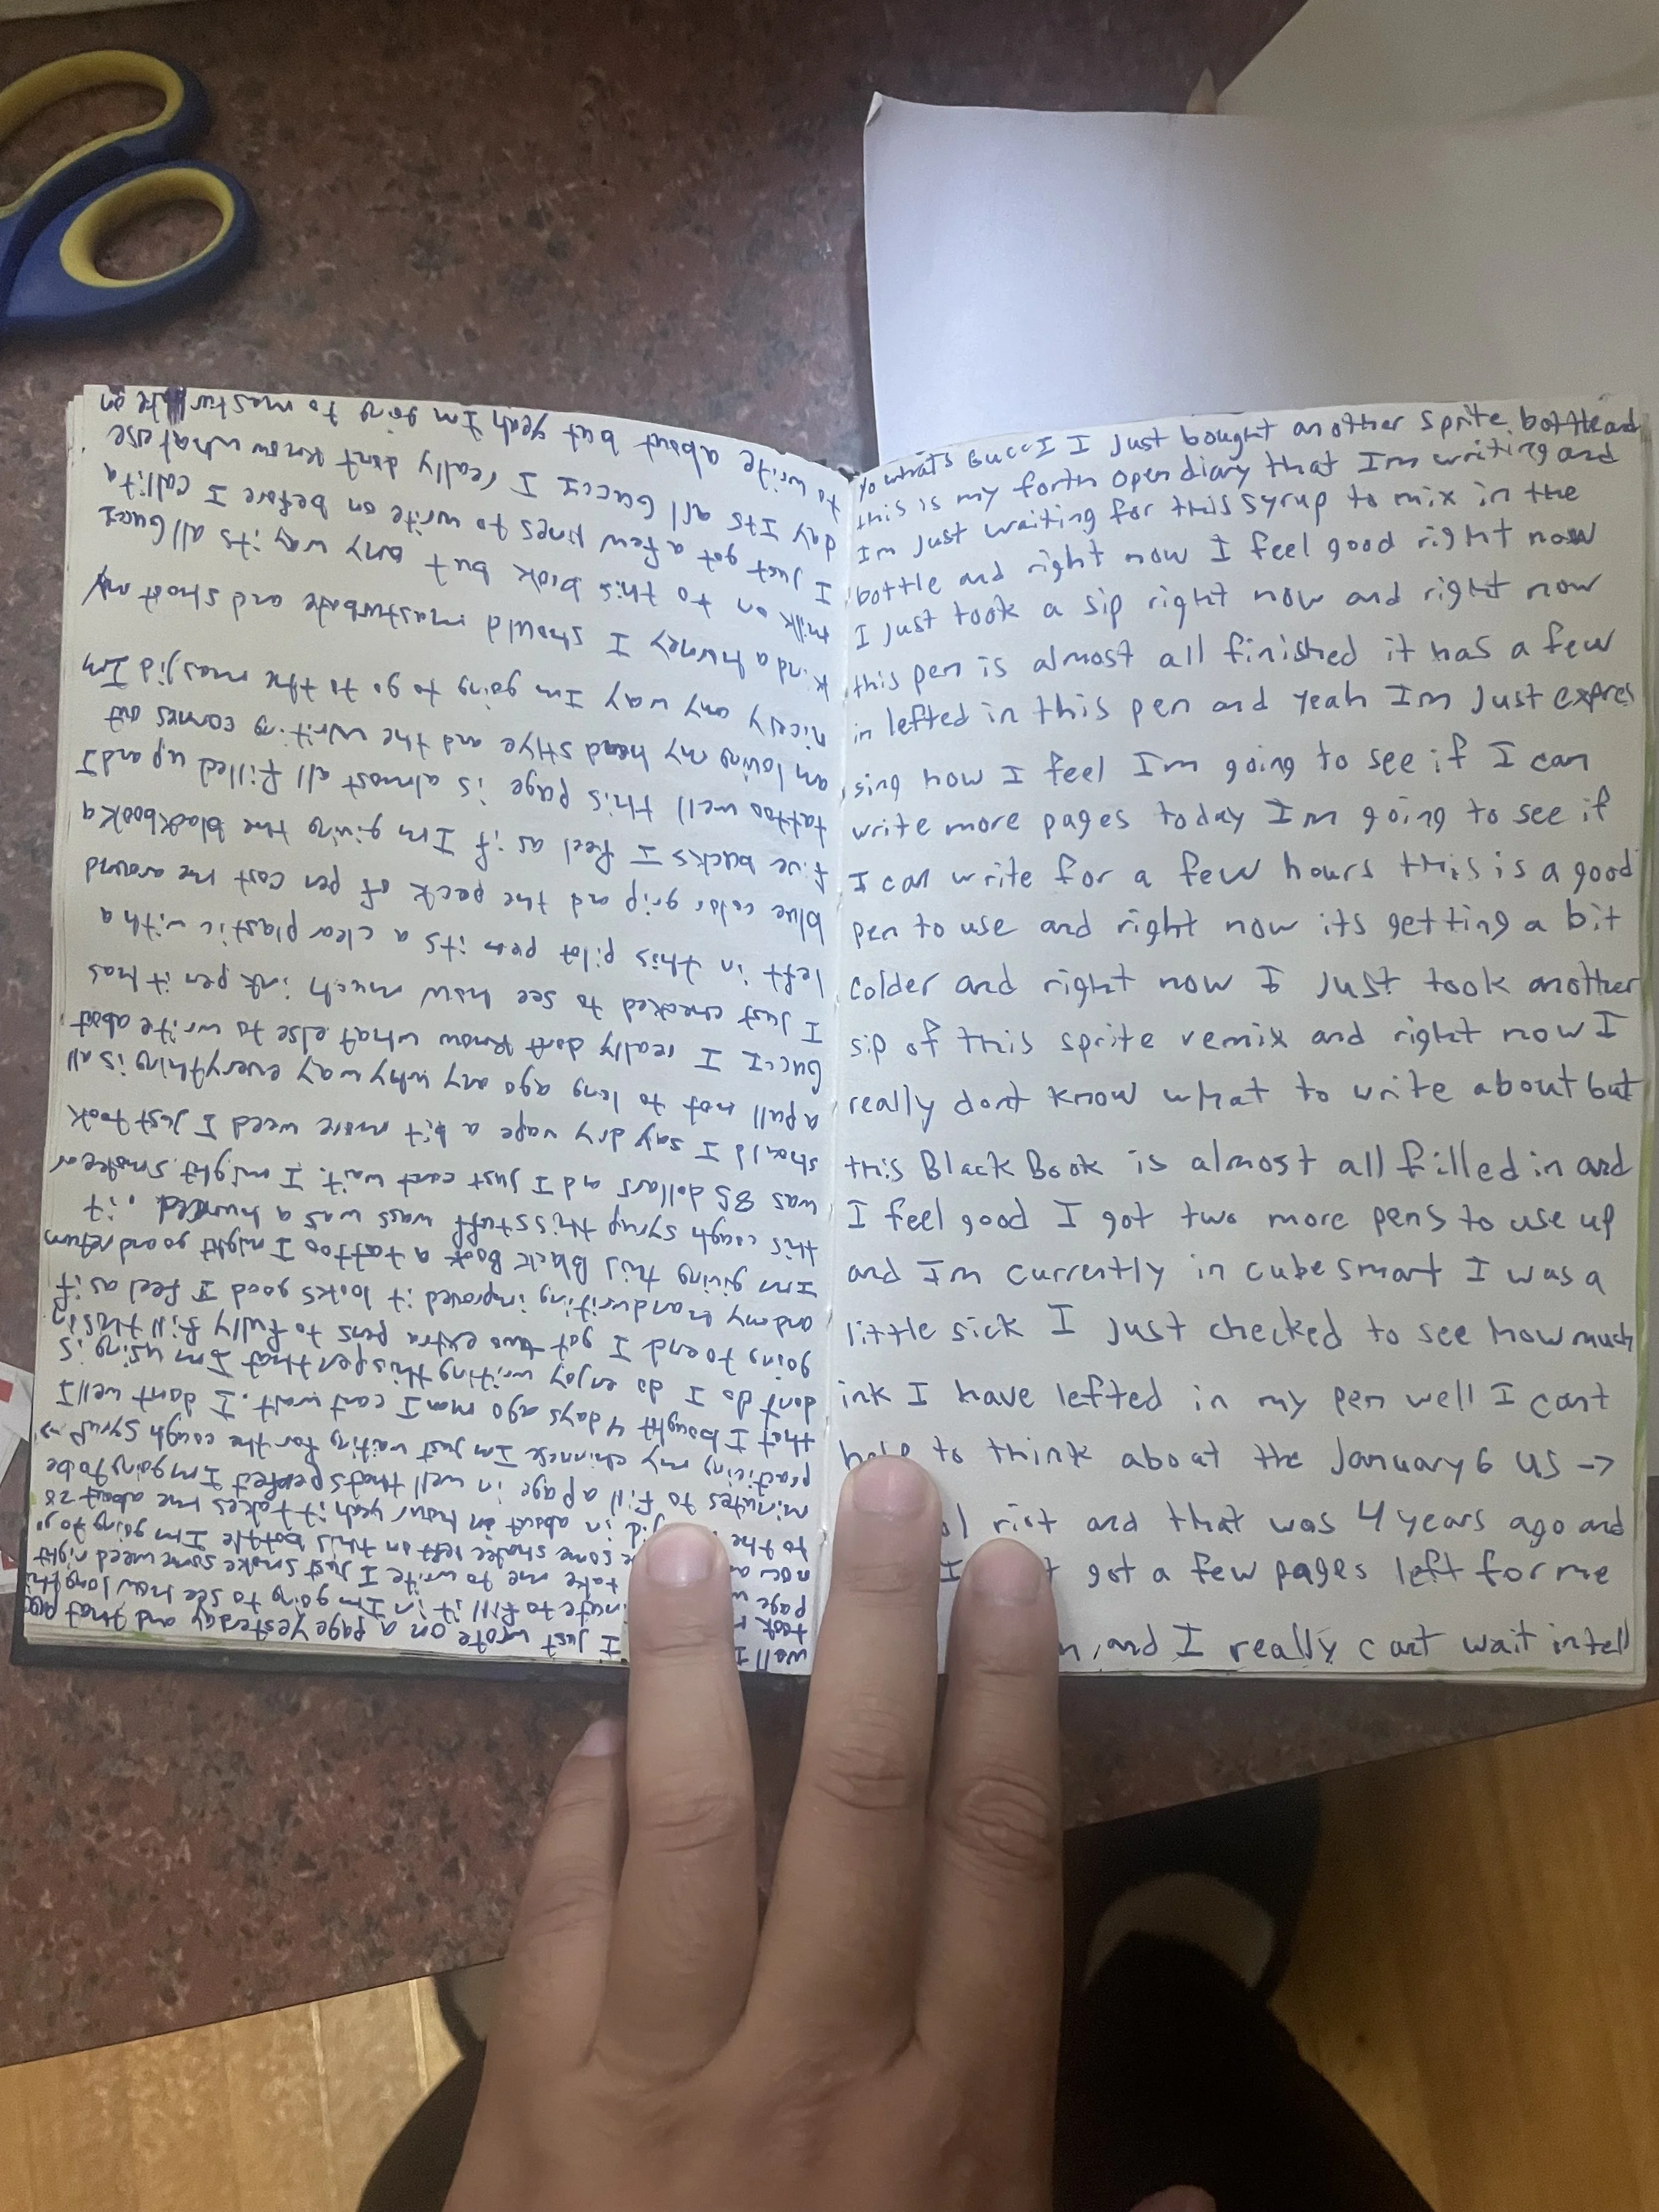 well I I just wrote on a page yesterday and that page
took to fill it in Im going to see how long
page take me to write I just smoke some weed right
now some shake left in this bottle Im going to go
to the in about in hour yeah it takes me about 28
minutes to fill a page in well thats perfect Im going to be
practicing my chinnese Im just waiting for the cough syrup →
that I bought 4 days ago man I cant wait. I dont well I
dont do I do enjoy writing this pen that Im using is
going to end I got two extra pens to fully fill this in
and my handwriting improved it looks good I feel as if
Im giving this Black Book a tattoo I might go and return
this cough syrup this stuff wass was a hundred . it
was 85 dollars and I just cant wait. I might smoke or
should I say dry vape a bit more weed I just took
a pull not to long ago any why way everything is all
Gucci I really dont know what else to write about
I just checked to see how much ink pen it has
left in this pilot pen its a clear plastic with a
blue color grip and the pack of pen cost me around
five bucks I feel as if Im giving the blackbook a
tattoo well this page is almost all filled up and I
am loving my head stlye and the writing comes out
nicely any way Im going to go to the masjid Im
kinda horney I should masturbate and shoot my
milk on to this book but any way its all Gucci
I just got a few lines to write on before I call it a
day Its all Gucci I really dont know what else
to write about but yeah Im going to masturbate on
yo whats Gucci I Just bought another sprite bottle and
this is my forth open diary that Im writing and
Im Just waiting for this syrup to mix in the
bottle and right now I feel good right now
I Just took a sip right now and right now
this pen is almost all finished it has a few
in lefted in this pen and yeah Im Just expres
sing how I feel Im going to see if I can
write more pages today Im going to see if
I can write for a few hours this is a good
pen to use and right now its getting a bit
colder and right now I Just took another
sip of this sprite remix and right now I
really dont know what to write about but
this Black Book is almost all filled in and
I feel good I got two more pens to use up
and Im currently in cubesmart I was a
little sick I Just checked to see how much
ink I have lefted in my pen well I cant
help to think about the January 6 us →
riot and that was 4 years ago and
I got a few pages left for me
and I really cant wait intell